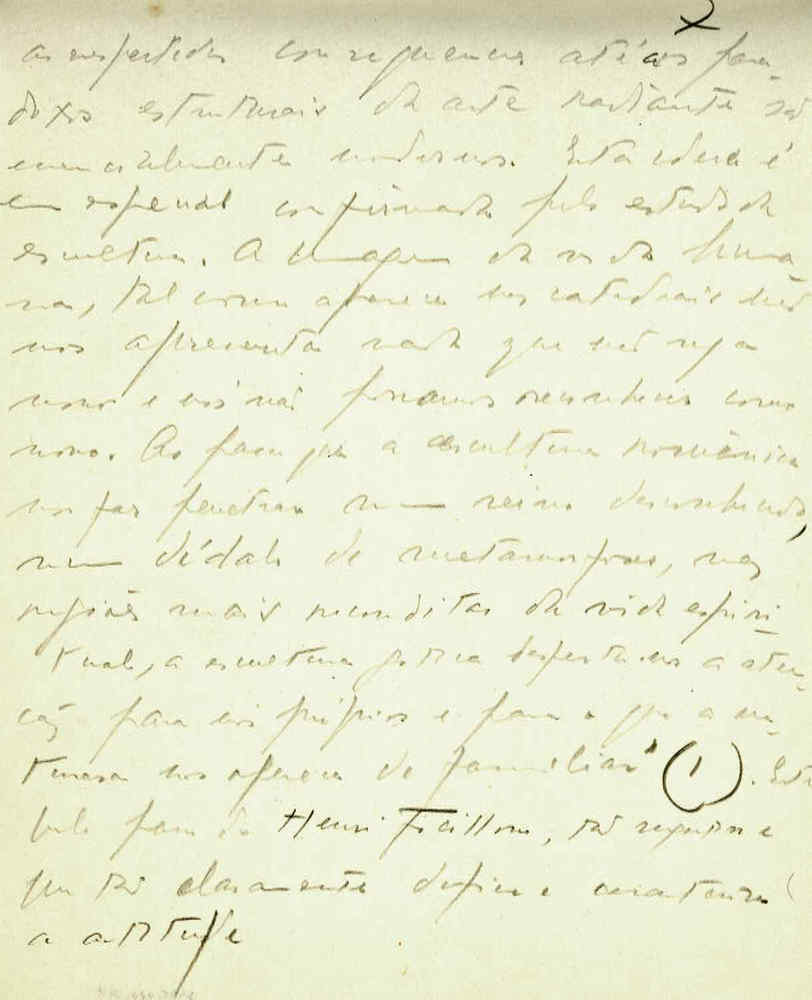 as respectivas consequencias até aos para-
doxos estruturais da arte radiante
essencialmente modernos. Esta ideia é
em especial confirmada pelo estudo da
escultura. A imagem da vida huma-
na, tal como aparece nas catedrais não
nos apresenta nada que não seja
novo e nós não possamos reconhecer como
novo. Ao passo que a escultura românica
nos faz penetrar num reino desconhecido,
num dédalo de metamorfoses, nas
regiões mais reconditas da vida espiri-
tual, a escultura gotica desperta-nos a aten-
ção para nós próprios e para o que a na-
tureza nos oferece de familiar" (1). Esta
de Henri Focillon, tão
que tão claramente define e caracteriza
a atitude